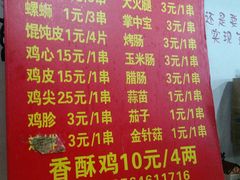 大火腿 3元/串
螺蛳 1元/3串 掌中宝 3元/串
馄饨皮 1元/4片 烤肠 3元/串
鸡心 1.5元/1串 玉米肠 3元/串
鸡皮 1.5元/1串 腊肠 3元/串
鸡尖 2.5元/1串 蒜苗 1元/串
鸡胗 3元/1串 茄子 1元/串
3元/1串 金针菇 1元/串
香酥鸡10元/4两
84611716
实现